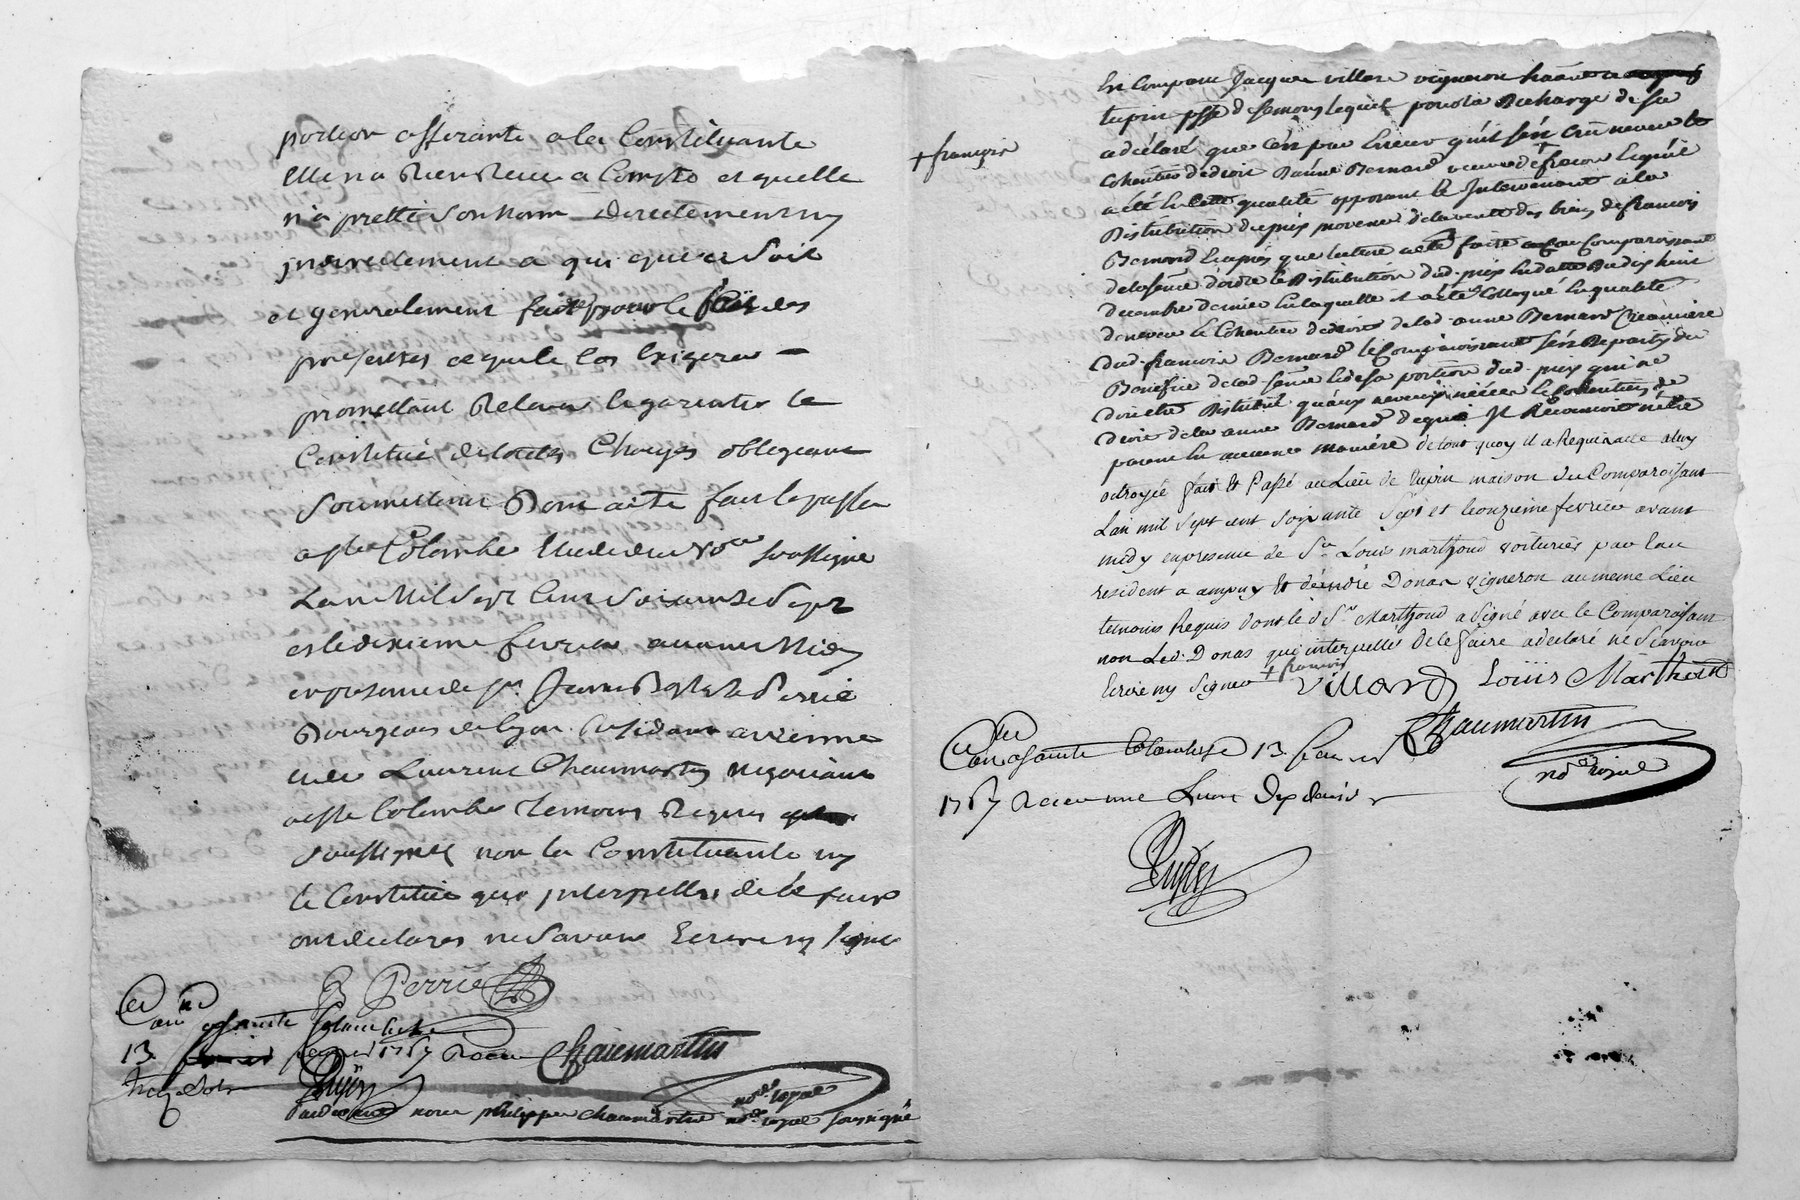 portion afferante a la Constituante
Elle na Rien Receu a Compte et quelle
n'a pretté son nom directement ny
indirectement a qui que ce soit
et generalement faire pour le des
presentes ce que le cas Exigera
promettant Relever Et garentir le
Constitué de toutes Charges obligeant
Soumettant Dont acte fait Et passé
a Ste Colombe Etude du no.re soussigné
Lan Mil Sept Cent Soixante Sept
et le dixieme fevrier avant Midy
en presence de Sr. Jean Bpte Perrié
Bourgeois de Lyon Resident a vienne
et de Laurent Chaumartin negociant
a Ste Colombe Temoins Requis
soussignés non la Constituante ny
le Constitué que interpellés de le faire
ont declarés ne savoir Ecrire ny signer
Perrié
a sainte Colombe
13 fevrier 1767 Receu
Chaumartin
Dupuy
no.re royal
pardevant nous philippe chaumartin no.re royal soussigné
En Comparu Jacques villard vigneron
tupin et semons lequel pour la decharge de sa
a déclaré que c'est par Erreur qu'il s'est crû neveu Et
Coheritier de droit Bernard veuve de + Lequel
a été En cette qualité opposant Et Intervenant à la
Distribution du prix provenu de la vente des biens de francois
Bernard Et apres que lecture a été faite au Comparoissant
de la sence d'ordre Et Distribution dud. prix En datte du dix huit
decembre dernier En laquelle il a été Colloqué En qualité
de neveu Et Coheritier de droit de lad. anne Bernard Creanciere
dud. francois Bernard le Comparoissant s'est Departy du
Benefice de lad. sence Et de sa portion dud. prix qui ne
doit etre Distribué qu'aux neveux nieces Et Coheritiers de
droit de la anne Bernard dequoi Il Reconnoit n'être
parent En aucune maniére de tout quoy il a Requis acte a luy
octroyé fait Et Passé au Lieu de tupin maison du Comparoissant
Lan mil sept cent soixante sept et le onzieme fevrier avant
midy en presence de Sr. Louis marthoud voiturier par Eau
resident a ampuy Et Donas vigneron au meme Lieu
temoins Requis dont le d. Sr. Marthoud a signé avec le Comparoissant
non Led. Donas que interpellé de le faire a declaré ne sçavoir
Ecrire ny signer + françois
+ françois
villard Louis Marthoud
Chaumartin
no.re royal
a sainte Colombe 13 fevrier
1767 Receu une Livre dix deniers
Dupuy